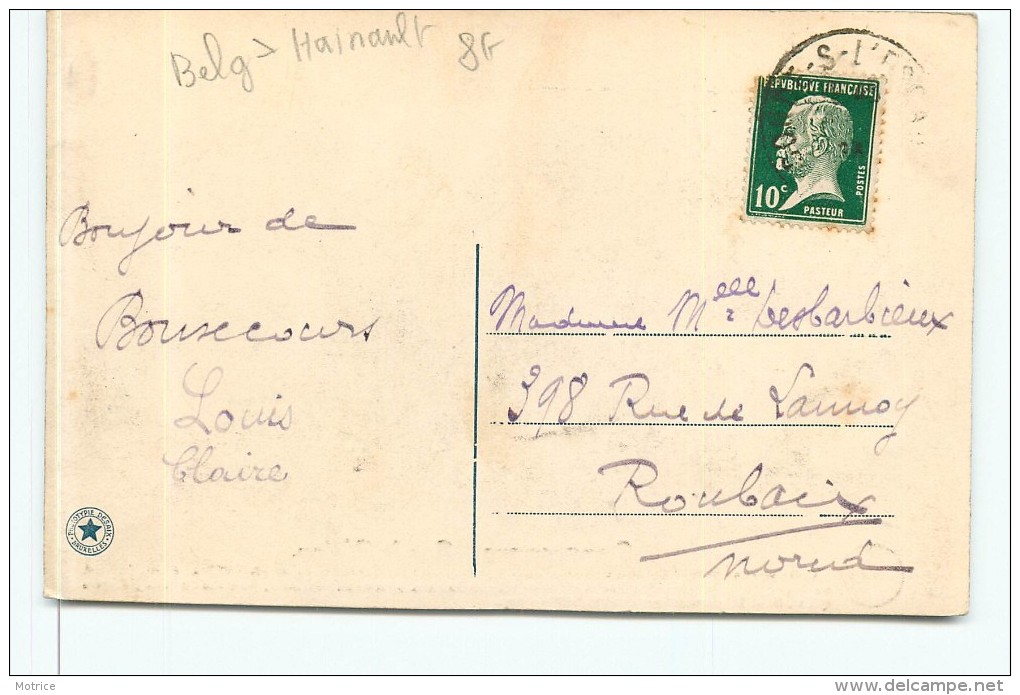 Belg > Hainault 8F
S-L'ES
REPVBLIQVE FRANCAISE
10c
POSTES
PASTEUR
Bonjour de
Bonsecours
Louis
Claire
Madame Melle Desbarbieux
398 Rue de Lannoy
Roubaix
Nord
PHOTOTYPIE DESAIX
BRUXELLES
Matrice
http://www.delcampe.net